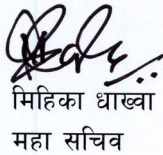 मिहिका धाख्वा
महा सचिव